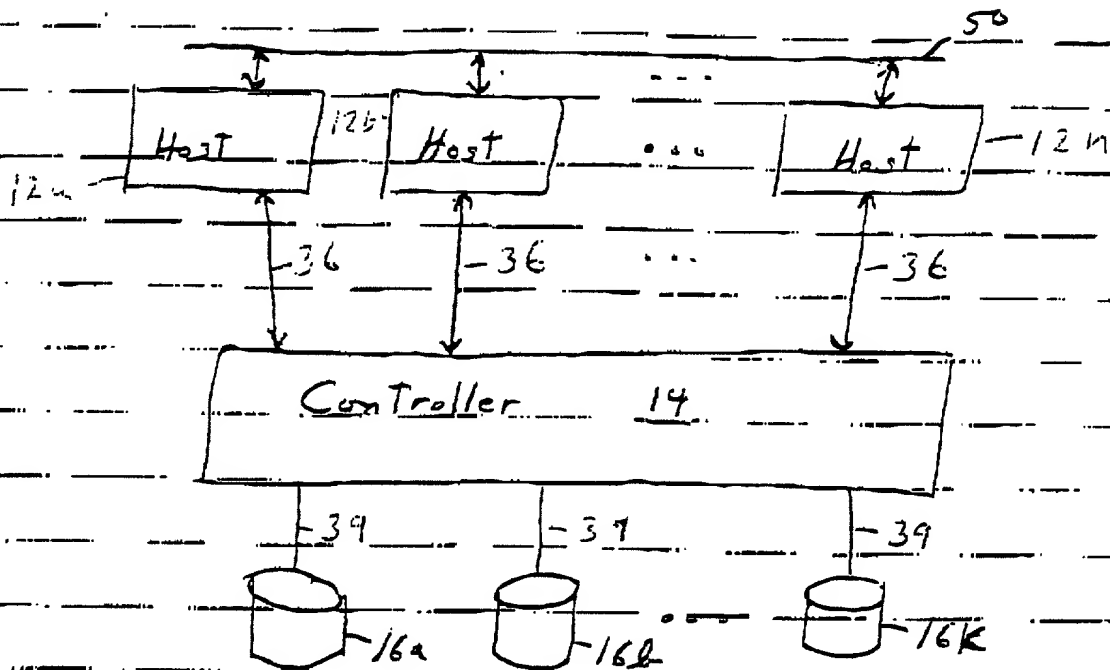 50
Host 12b Host ... Host 12n
12a
36 36 ... 36
Controller 14
39 39 39
16a 16b ... 16k